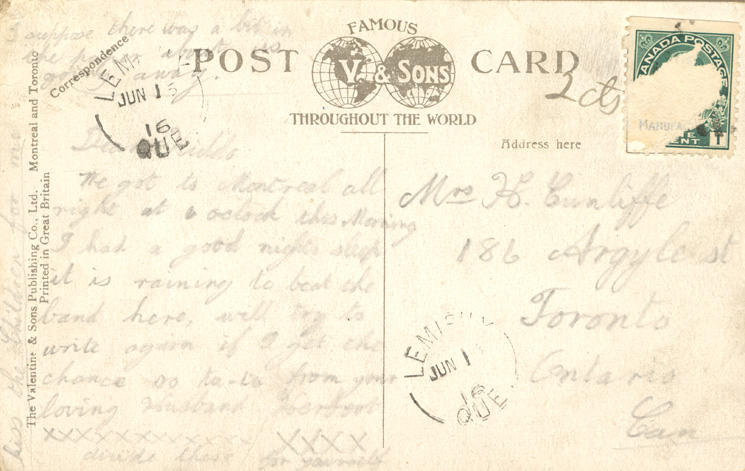 suppose there was a bit in
the paper about us
going away.
Correspondence
FAMOUS
POST CARD
V & SONS
THROUGHOUT THE WORLD
Address here
2cts
CANADA POSTAGE
MANUFA
NT
LEM
JUN 1
16
QUE
The Valentine & Sons Publishing Co., Ltd. Montreal and Toronto
Printed in Great Britain
We got to Montreal all
right at o'clock this Morning
I had a good nights sleep
it is raining to beat the
band here, will try to
write again if I get the
chance so ta-ta from your
loving Husband
XXXXXXXXXXX XXXX
divide these for yourself
kiss the children for me
Mrs H. Cunliffe
186 Argyle st
Toronto
Ontario
Can
LEMI
JUN 1
16
QUE.